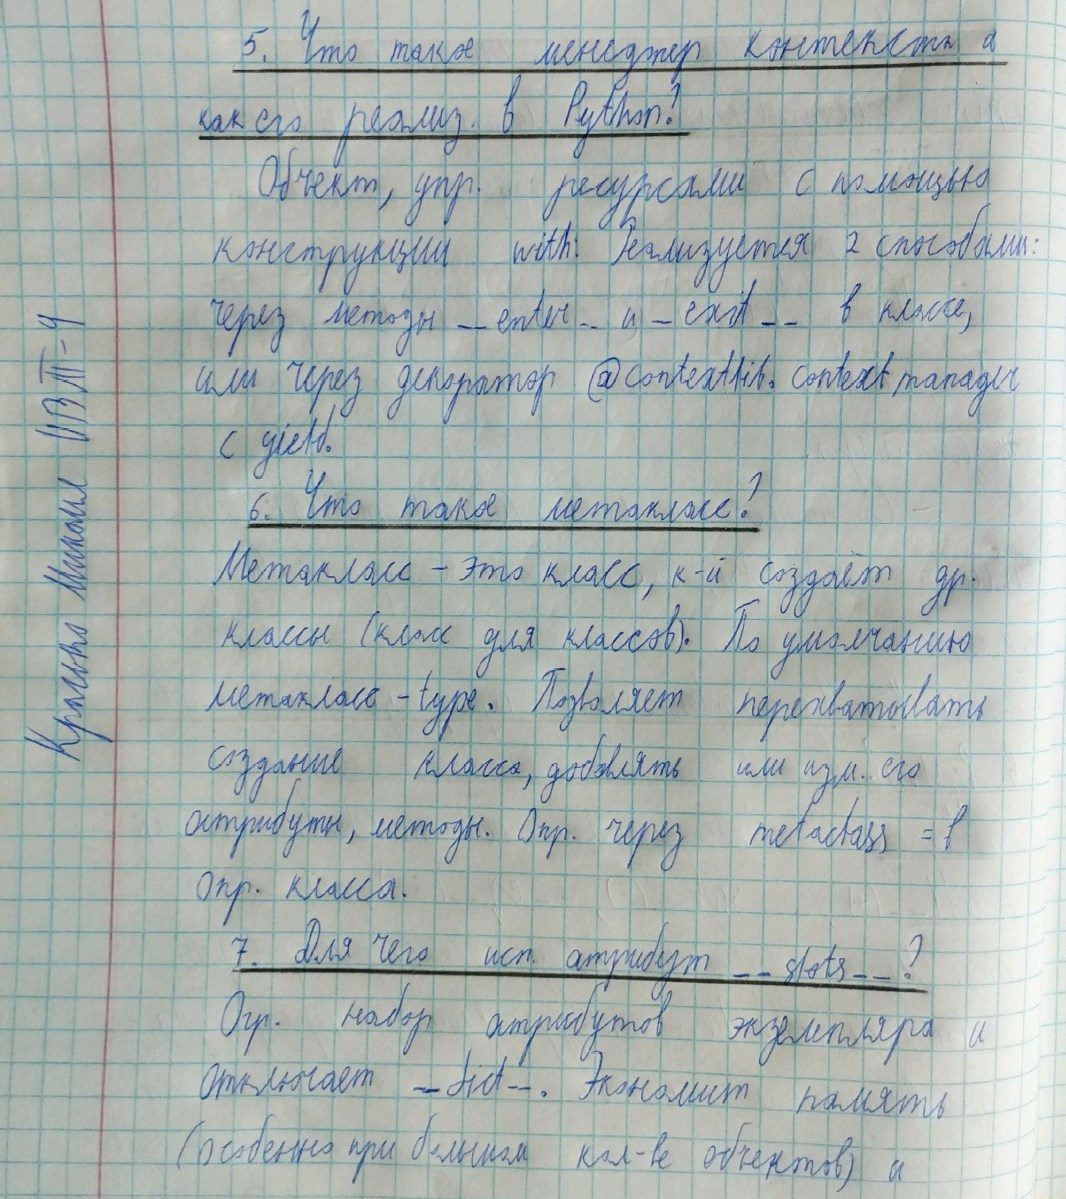 5. Что такое менеджер контекста и
как его реализ. в Python?
Объект, упр. ресурсами с помощью
конструкции with. Реализуется 2 способами:
через методы __enter__ и __exit__ в классе,
или через декоратор @contextlib.contextmanager
с yield.
6. Что такое метакласс?
Метакласс - это класс, к-й создаёт др.
классы (класс для классов). По умолчанию
метакласс - type. Позволяет перехватывать
создание класса, добавлять или изм. его
атрибуты, методы. Опр. через metaclass = в
опр. класса.
7. Для чего исп. атрибут __slots__?
Огр. набор атрибутов экземпляра и
отключает __dict__. Экономит память
(особенно при большом кол-ве объектов) и
Михаил ИВТII-4